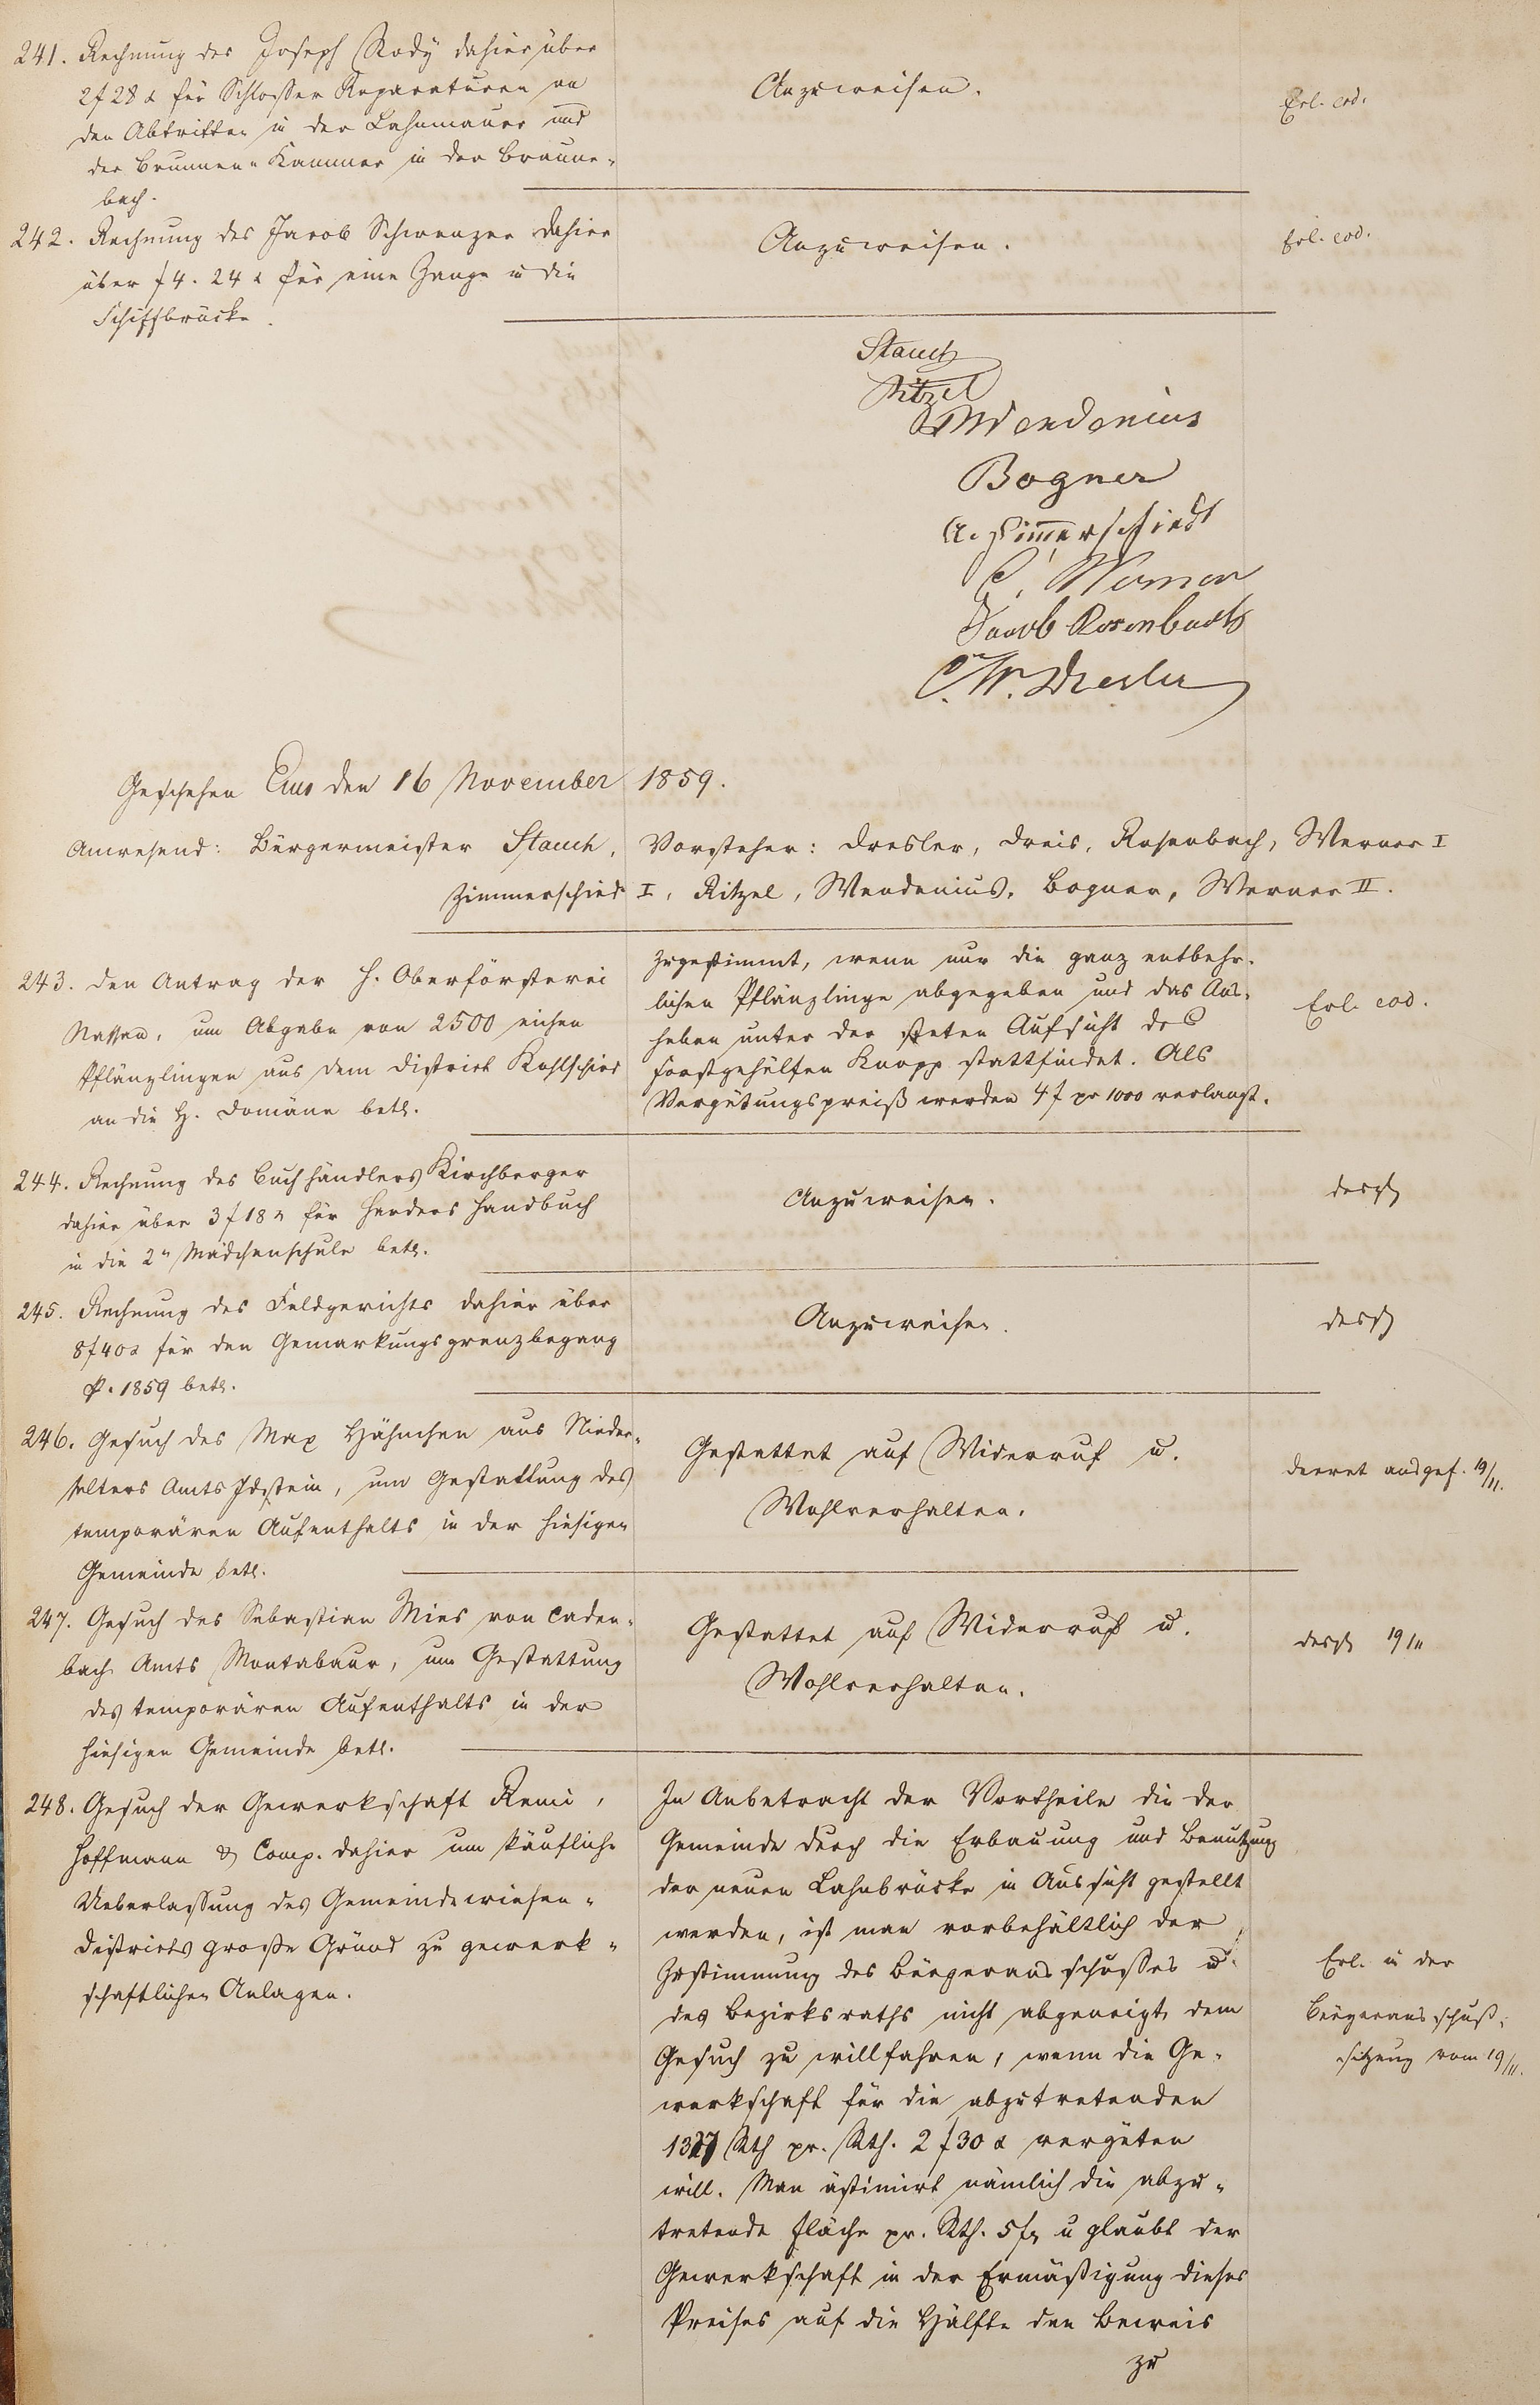 241. Rechnung des Joseph Kody dahier über
2 f 28 x für Schlosser Reparaturen an
den Abtritten in der Lahnmauer und
der Brunnen-Kammer in der Braune-
bach.
Anzuweisen.
Erl. eod.
242. Rechnung des Jacob Schwenzer dahier
über f 4. 24 x für eine Zange in die
Schiffbrücke.
Anzuweisen.
Erl. eod.
Stauch
Ritzel
Wendenius
Bogner
A. Zimmerschied
C. Werner
Jacob Rosenbach
C. W. Dresler
Geschehen Ems den 16 November 1859.
Anwesend: Bürgermeister Stauch, Vorsteher: Dresler, Dreis, Rosenbach, Werner I
Zimmerschied I, Ritzel, Wendenius, Bogner, Werner II.
243. Den Antrag der H. Oberförsterei
Nassau, um Abgabe von 2500 eichen
Pflänzlingen aus dem District Kohlschied
an die H. Domäne betr.
Zugestimmt, wenn nur die ganz entbehr-
lichen Pflänzlinge abgegeben und das Aus-
heben unter der steten Aufsicht des
Forstgehülfen Knopp stattfindet. Als
Vergütungspreiß werden 4 f pr 1000 verlangt.
Erl. eod.
244. Rechnung des Buchhändlers Kirchberger
dahier über 3 f 18 x für Herders Handbuch
in die 2n Mädchenschule betr.
Anzuweisen.
desgl
245. Rechnung des Feldgerichts dahier über
8 f 40 x für den Gemarkungsgrenzbegang
p. 1859 betr.
Anzuweisen.
desgl
246. Gesuch des Max Hähnchen aus Nieder-
selters Amts Idstein, um Gestattung des
temporären Aufenthalts in der hiesigen
Gemeinde betr.
Gestattet auf Widerruf u.
Wohlverhalten.
Decret ausgef. 19/11.
247. Gesuch des Sebastian Mies von Caden-
bach Amts Montabaur, um Gestattung
des temporären Aufenthalts in der
hiesigen Gemeinde betr.
Gestattet auf Widerruf u.
Wohlverhalten.
desgl 19/11
248. Gesuch der Gewerkschaft Remi,
Hoffmann & Comp. dahier um käufliche
Ueberlassung des Gemeindewiesen-
Districts große Gründ zu gewerk-
schaftlichen Anlagen.
In Anbetracht der Vortheile die der
Gemeinde durch die Erbauung und Benutzung
der neuen Lahnbrücke in Aussicht gestellt
werden, ist man vorbehältlich der
Zustimmung des Bürgerausschusses u.
des Bezirksraths nicht abgeneigt, dem
Gesuch zu willfahren, wenn die Ge-
werkschaft für die abzutretenden
1327 Rth pr. Rth. 2 f 30 x vergüten
will. Man ästimirt nämlich die abzu-
tretende Fläche pr. Rth. 5 f u glaubt der
Gewerkschaft in der Ermäßigung dieses
Preises auf die Hälfte den Beweis
zu
Erl. in der
Bürgerausschuß-
sitzung vom 19/11.